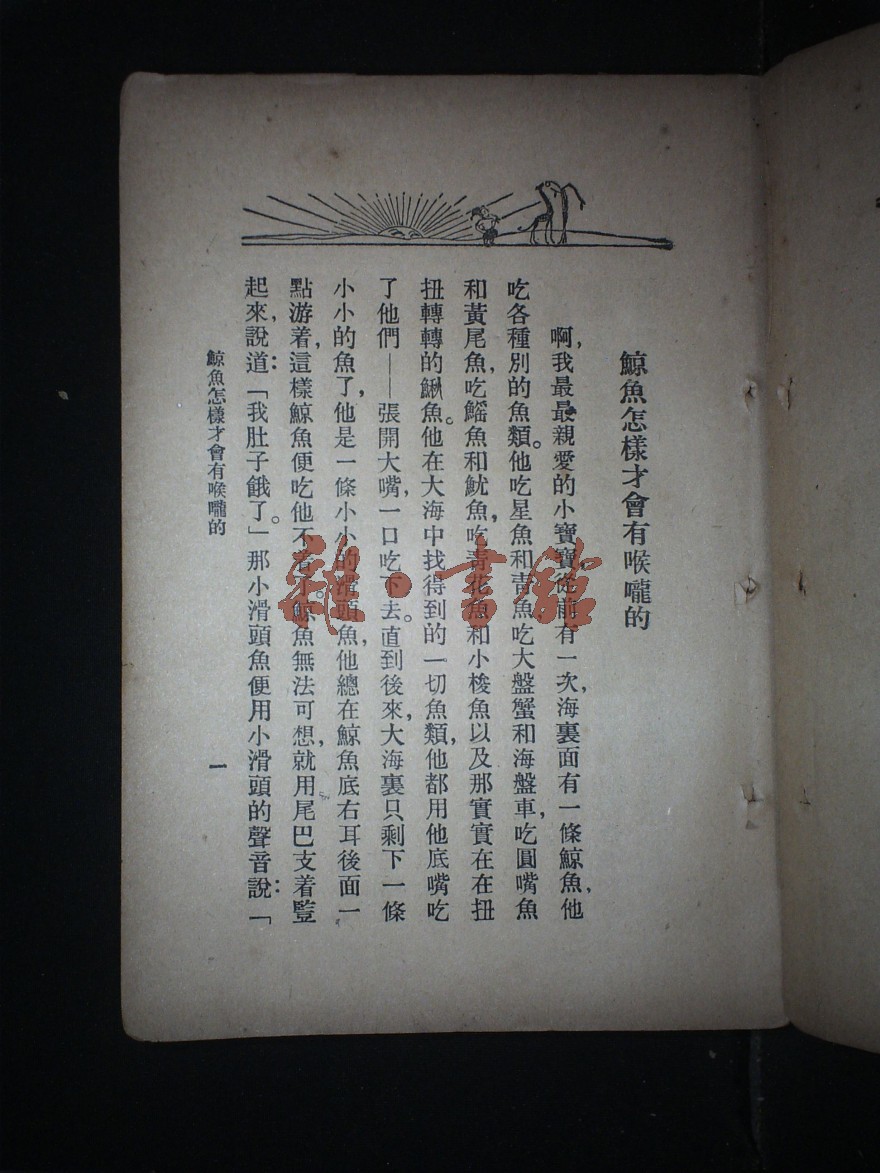 鯨魚怎樣才會有喉嚨的
啊,我最最親愛的小寶寶,從前有一次,海裏面有一條鯨魚,他
吃各種別的魚類。他吃星魚和青魚,吃大盤蟹和海盤車,吃圓嘴魚
和黃尾魚,吃鰩魚和魷魚,吃青花魚和小梭魚以及那實實在在扭
扭轉轉的鰍魚。他在大海中找得到的一切魚類,他都用他底嘴吃
了他們——張開大嘴,一口吃下去。直到後來,大海裏只剩下一條
小小的魚了,他是一條小小的滑頭魚,他總在鯨魚底右耳後面一
點游着,這樣鯨魚便吃他不着了。鯨魚無法可想,就用尾巴支着豎
起來,說道:「我肚子餓了。」那小滑頭魚便用小滑頭的聲音說:「
鯨魚怎樣才會有喉嚨的
一
雜·书馆